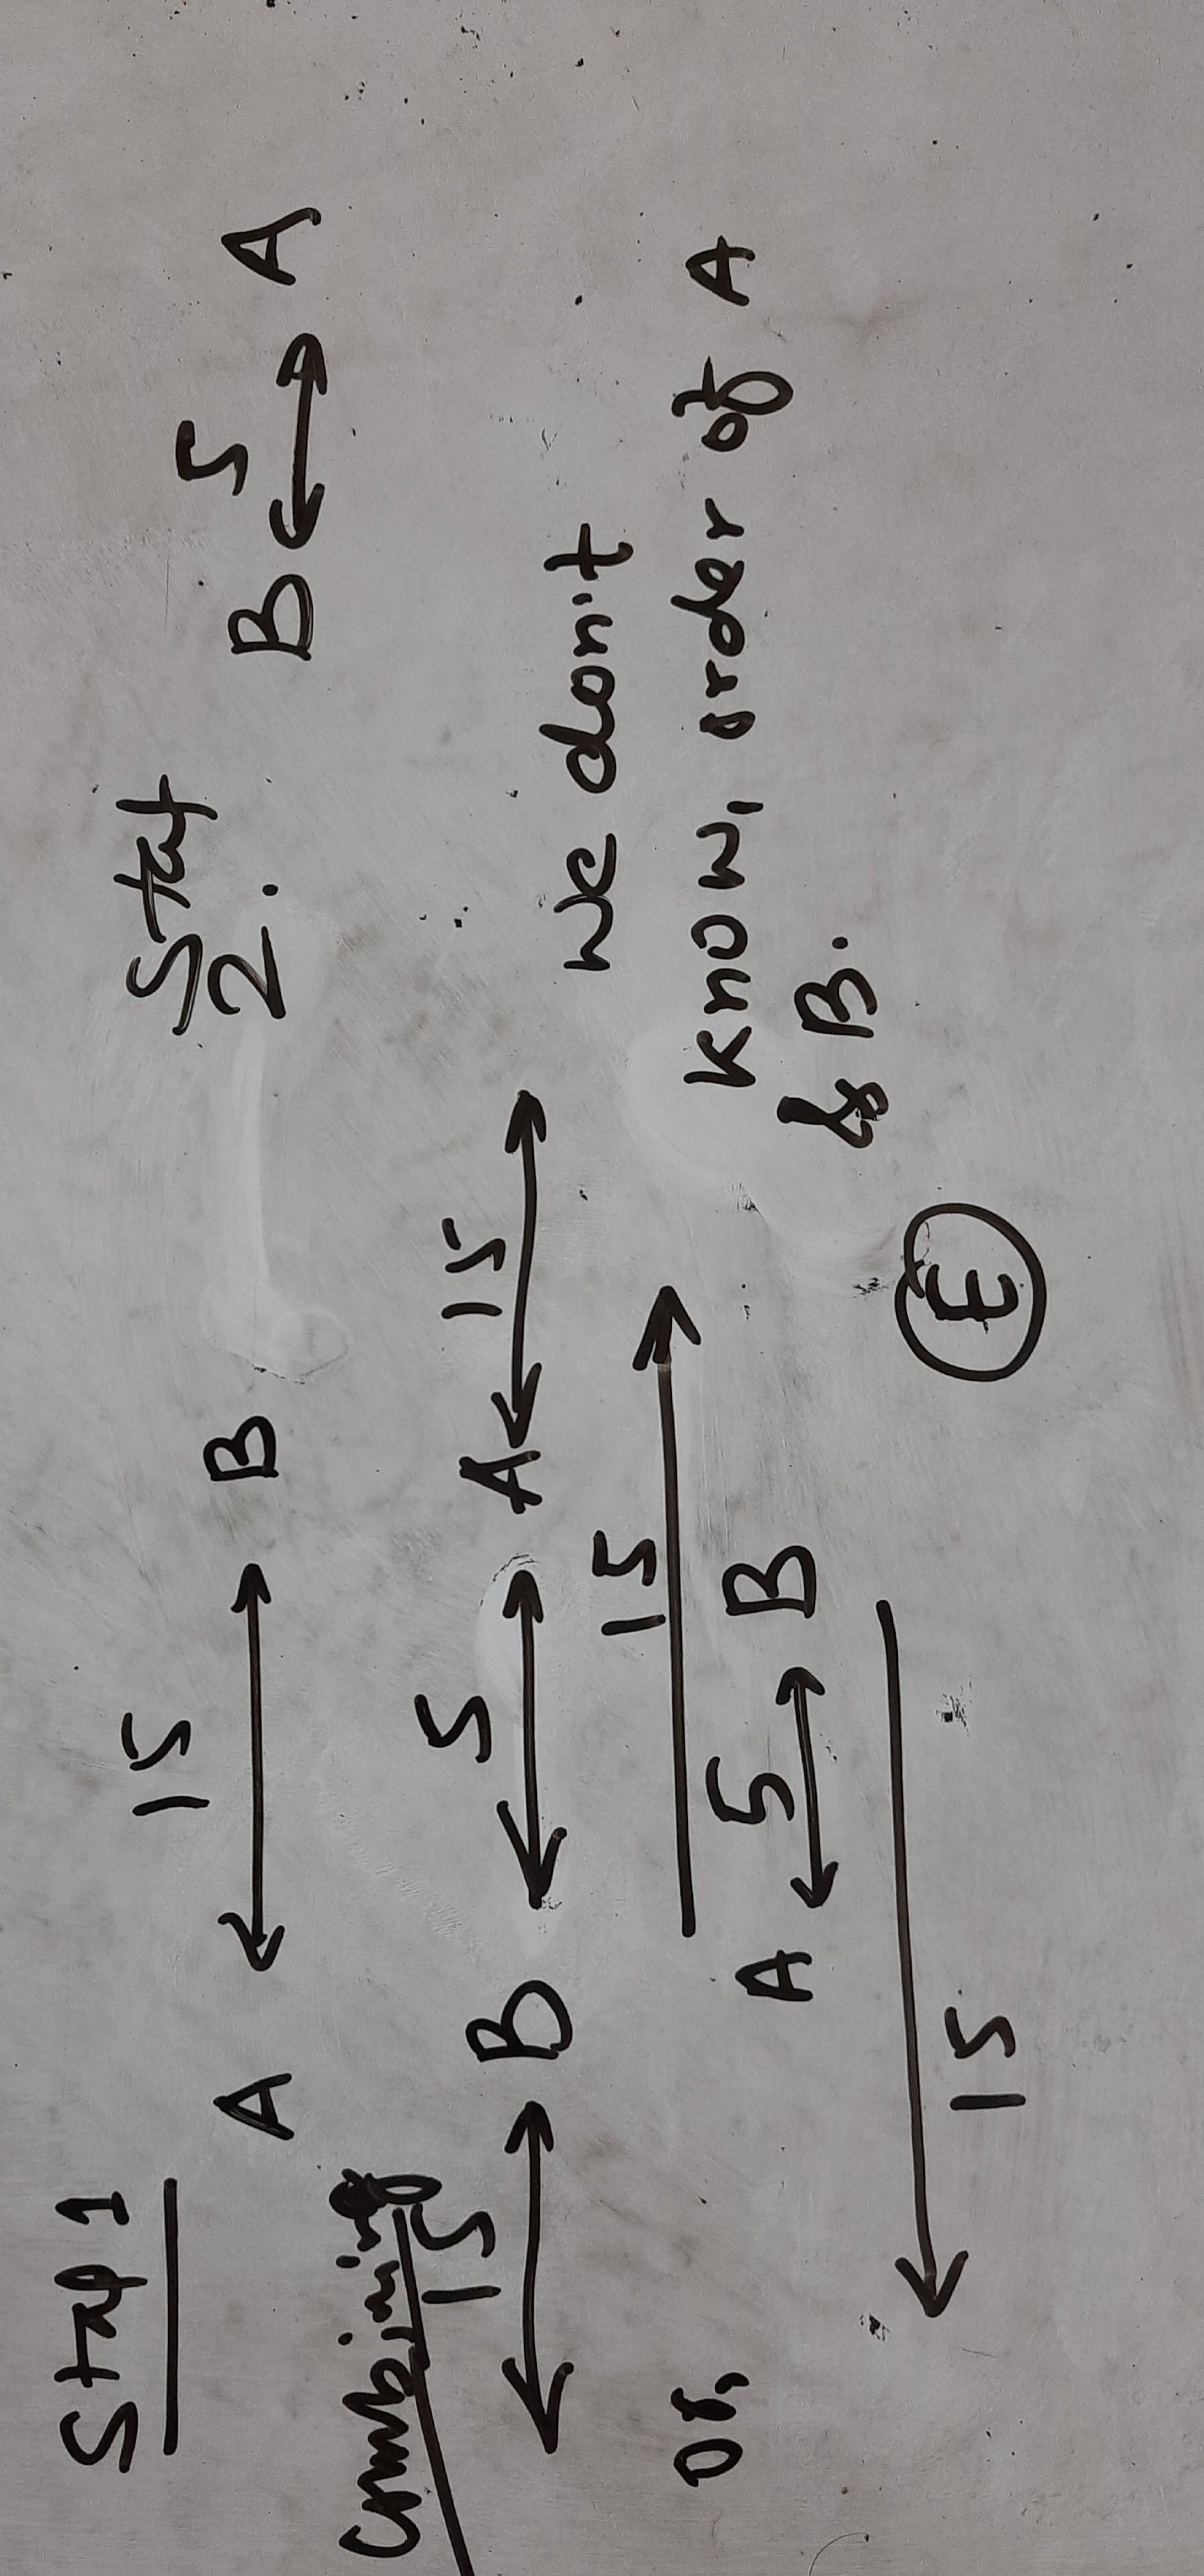 Stat 1
15
A ↔ B
Stat
2.
5
B ↔ A
Combining
15 5 15
↔ B ↔ A ↔
we don't
know, order of A
& B.
or,
15
A 5 B
15
E